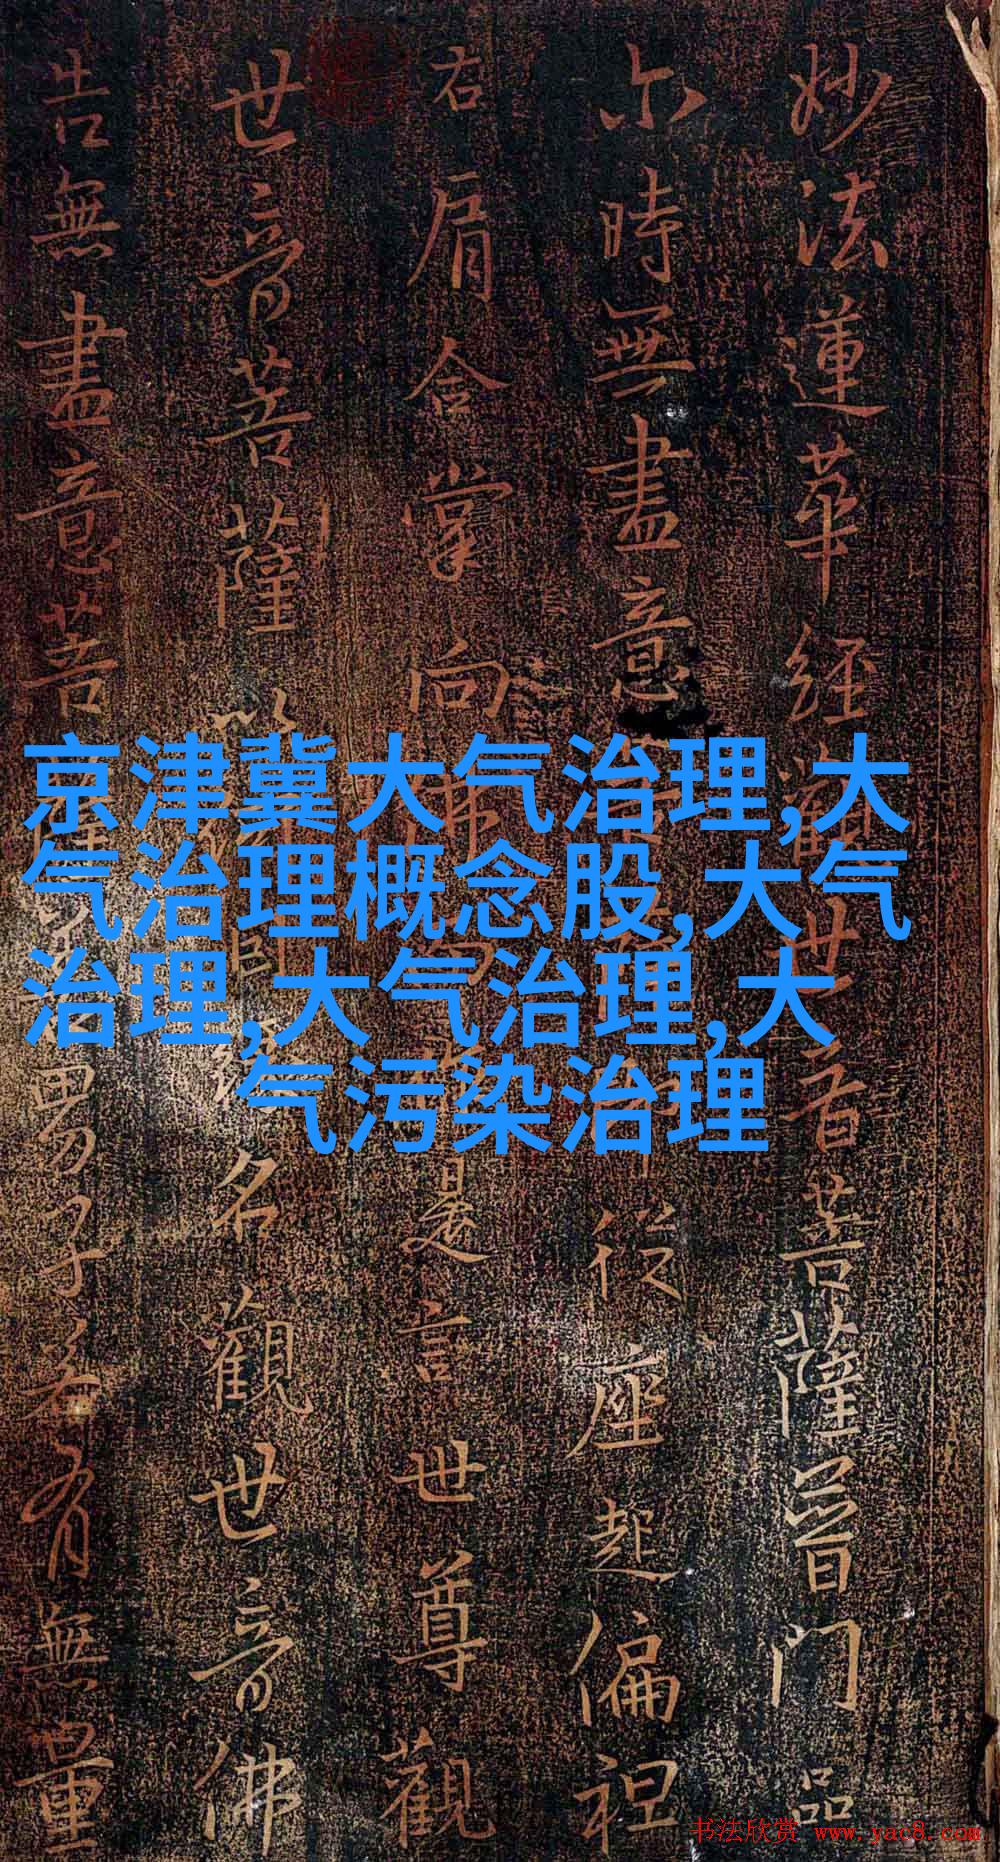 妙法蓮華經觀世音菩薩普門品
尒時無盡意從座起偏袒
右肩合掌向佛是言世尊觀
世音菩薩緣名觀世音佛
告無盡意菩薩男子若有無量
京津冀大气治理,大
气治理概念股,大气
治理,大气治理,大
气污染治理
书法欣赏 www.yac8.com